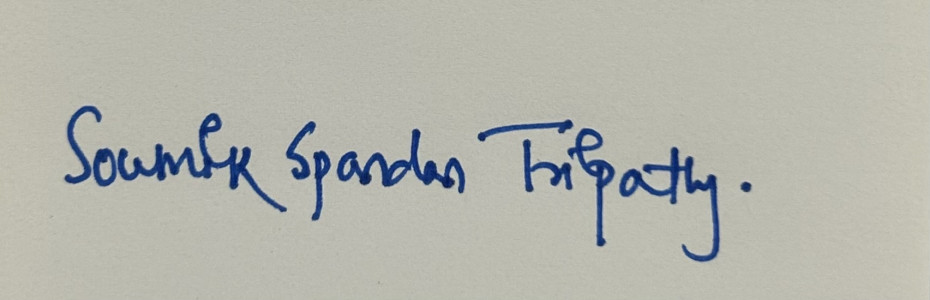 Soumik Spandan Tripathy.